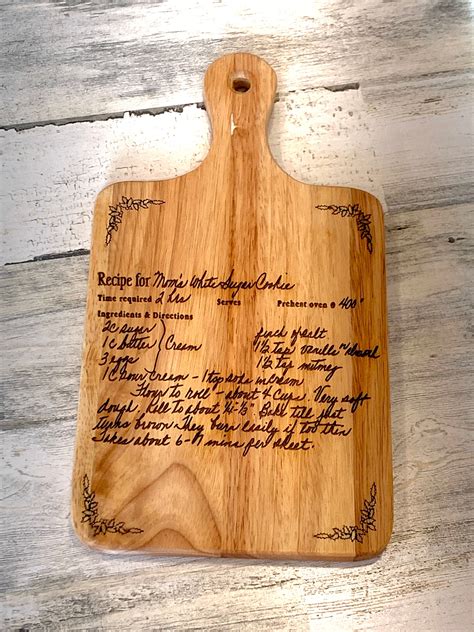 Recipe for Mom's White Sugar Cookie
Time required 2 hrs Serves Preheat oven @ 400°
Ingredients & Directions
2C sugar pinch of salt
1C butter } Cream 1½ tsp vanilla
3 eggs 1½ tsp nutmeg
1C sour cream - 1 tsp soda in cream
Flour to roll - about 4 Cups. Very soft
dough. Roll to about ¼-½". Bake till just
turns brown. They burn easily if too thin
Takes about 6-7 mins per sheet.